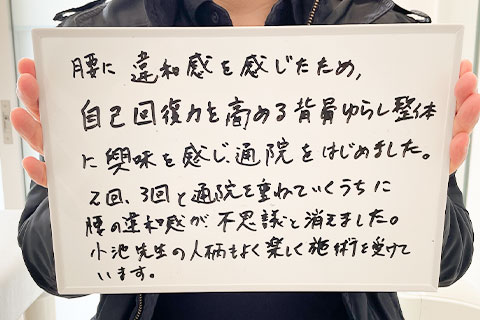 腰に違和感を感じたため,
自己回復力を高める背骨ゆらし整体
に興味を感じ、通院をはじめました。
2回、3回と通院を重ねていくうちに
腰の違和感が不思議と消えました。
小池先生の人柄もよく楽しく施術を受けて
います。